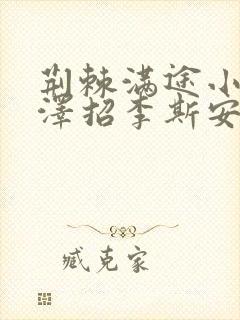 荆棘满途小
澤招李斯安
臧克家